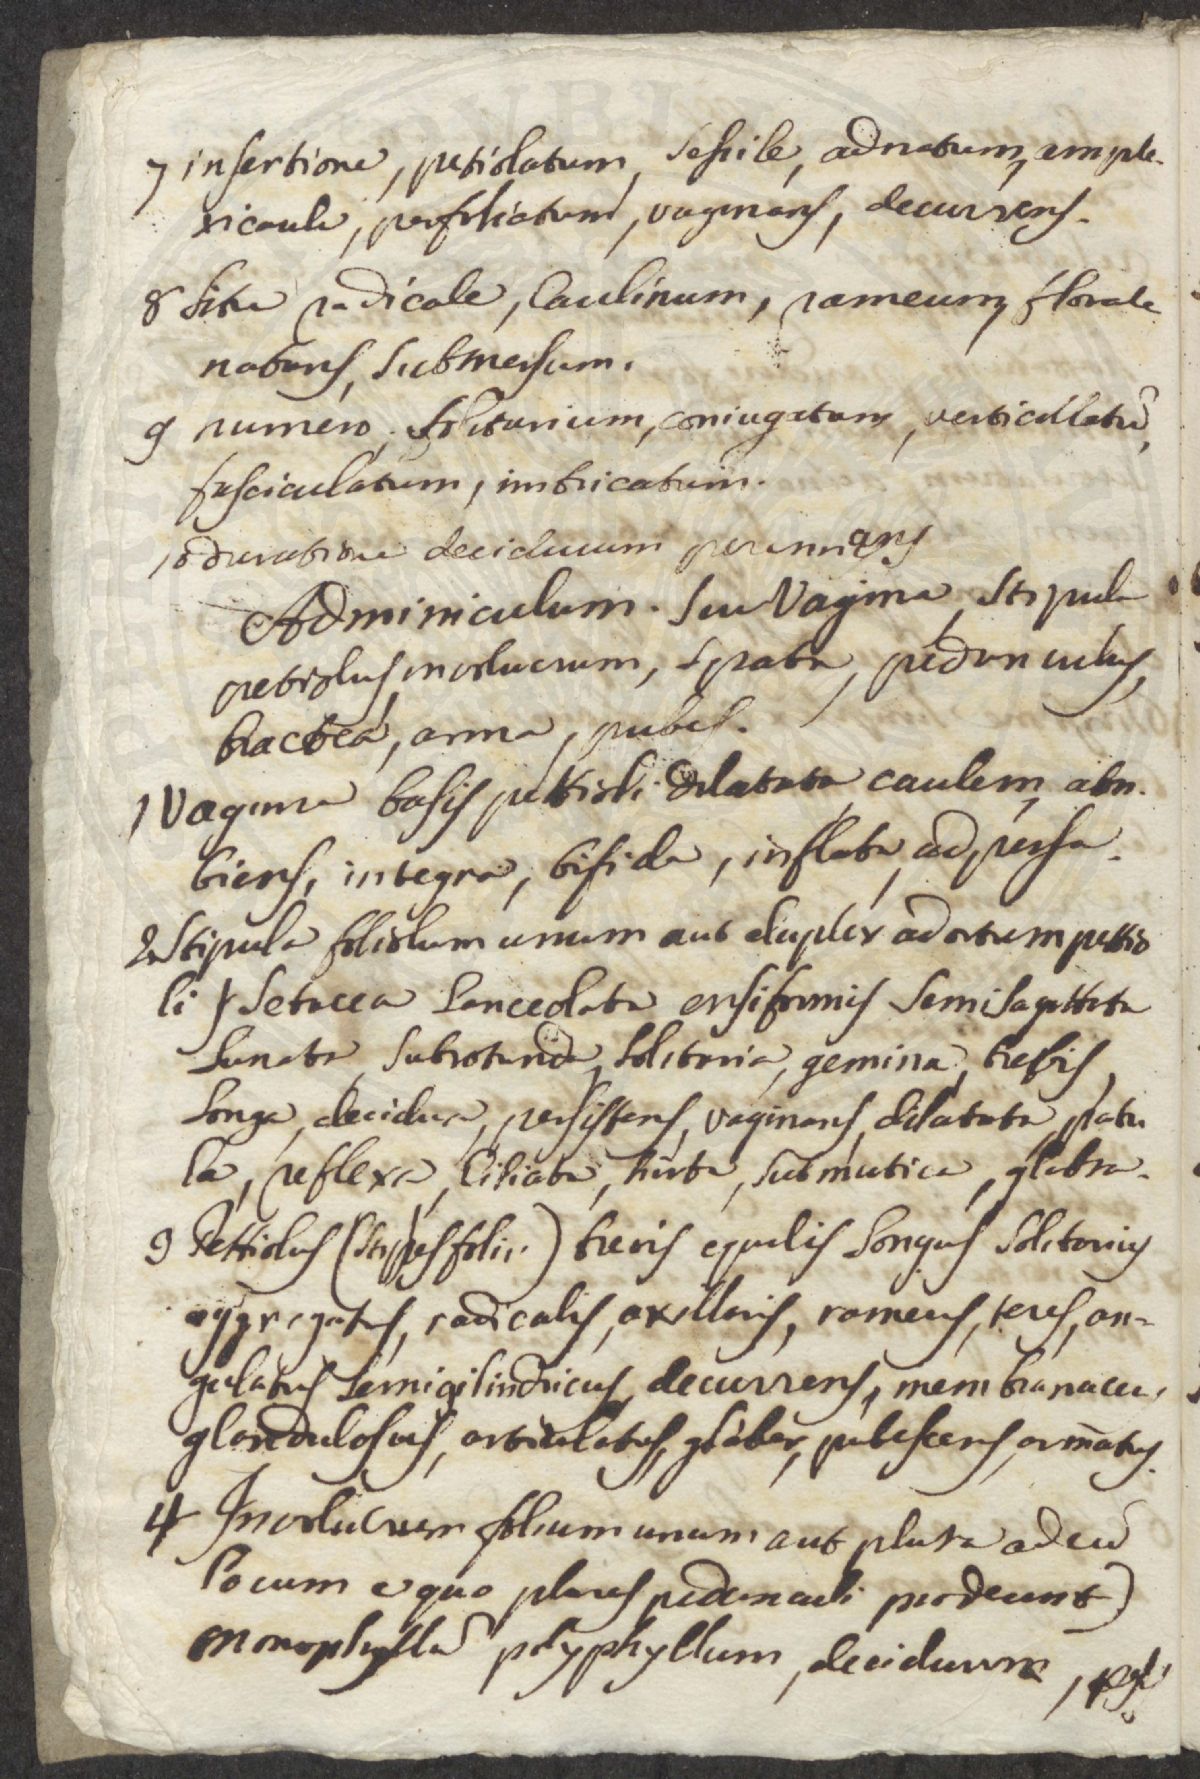 7 insertione, petiolatum, sessile, adnatum, ample-
xicaule, perfoliatum, vaginans, decurrens.
8 Situ radicale, Caulinum, rameum, florale
natans, submersum.
9 numero. solitarium, coniugatum, verticillatū,
fasciculatum, imbricatum.
10 duratione deciduum perennans
Adminiculum. seu Vagina, Stipula
petiolus, involucrum, spata, pedunculus,
bractea, arma, pubes.
1 Vagina basis pettioli dilatata caulem am-
biens, integra, bifida, inflata, adpressa.
2 Stipula foliolum unum aut duplex ad ortum pettio
li) Setacea Lanceolata ensiformis Semisagittata
Lunata, subrotunda, solitaria, gemina, brevis,
Longa, decidua, persistens, vaginans, dilatata, patu
la, reflexa, Ciliata, hirta, submutica, glabra.
3 Pettiolus (Stipes folii) brevis equalis Longus Solitarius
aggregatus, radicalis, axillaris, rameus, teres, an-
gulatus Semicilindricus, decurrens, membranaceu,
glandulosus, articulatus, glaber, pubescens, armatus.
4 Involucrum folium unum aut plura ad eū
Locum e quo plures pedunculi prodeunt)
monophyllū polyphyllum, deciduum,